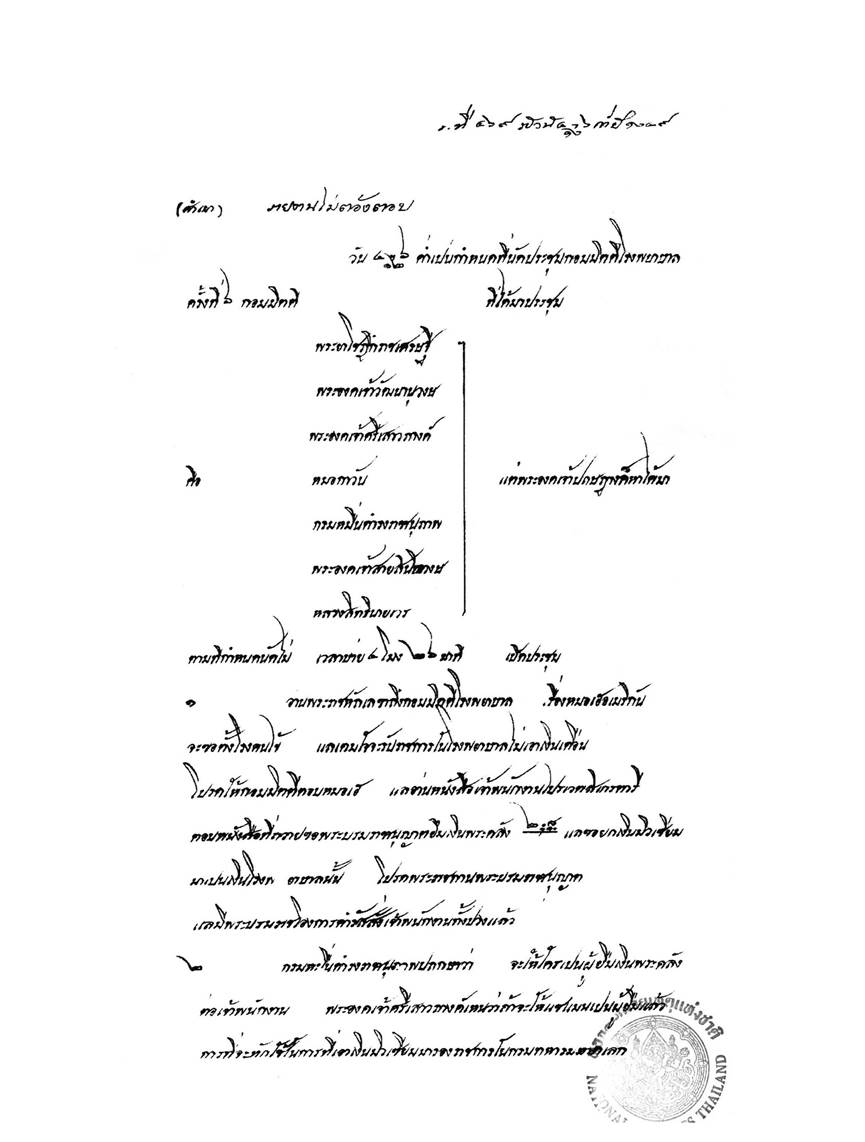 (สำเนา) รายงานไม่ต้องตอบ
วัน ค่ำเปนกำหนดที่นัดประชุมกอมมิตตีโรงพยาบาล
ครั้งที่ ๖ กอมมิตตี ที่ได้มาประชุม
พระยาโชฎึกราชเศรษฐี
พระองคเจ้าวัฒนานุวงษ
พระองคเจ้าศรีเสาวภางค์
คือ หมอกาวัน แต่พระองคเจ้า ได้มา
กรมหมื่นดำรงราชานุภาพ
พระองคเจ้าสายสนิทวงษ
หลวงสิทธินายเวร
ตามที่กำหนดนัดไว้ เวลาบ่าย ๔ โมง ๒๖ นาที เปิดประชุม
๑ อ่านพระราชหัตเลขาถึงกอมมิตตีโรงพยาบาล เรื่องหมออเมริกัน
จะขอตั้งโรงคนไข้ แล จะรับราชการในโรงพยาบาลไม่เอาเงินเดือน
โปรดให้กอมมิตตีตอบหมอเฮ แลอ่านหนังสือเจ้าพนักงานไปรเวตสิเกรตารี
ตอบหนังสือที่ถวายขอพระบรมราชานุญาตยืมเงินพระคลัง แลขอยกเงิน
มาเปนเงินโรงพยาบาลนั้น โปรดพระราชทานพระบรมราชานุญาต
แลมีพระบรมราชโองการดำรัสสั่งเจ้าพนักงานทั้งปวงแล้ว
๒ กรมหมื่นดำรงราชานุภาพปฤกษาว่า จะให้ใครเปนผู้ยืมเงินพระคลัง
ต่อเจ้าพนักงาน พระองคเจ้าศรีเสาวภางค์เหนว่าถ้าจะให้แชแมนเปนผู้ยืมแล้ว
การที่จะหักใช้ในการที่เอาเงิน ราชการในกรมทหารมหาดเลก
หอจดหมายเหตุแห่งชาติ
NATIONAL ARCHIVES THAILAND